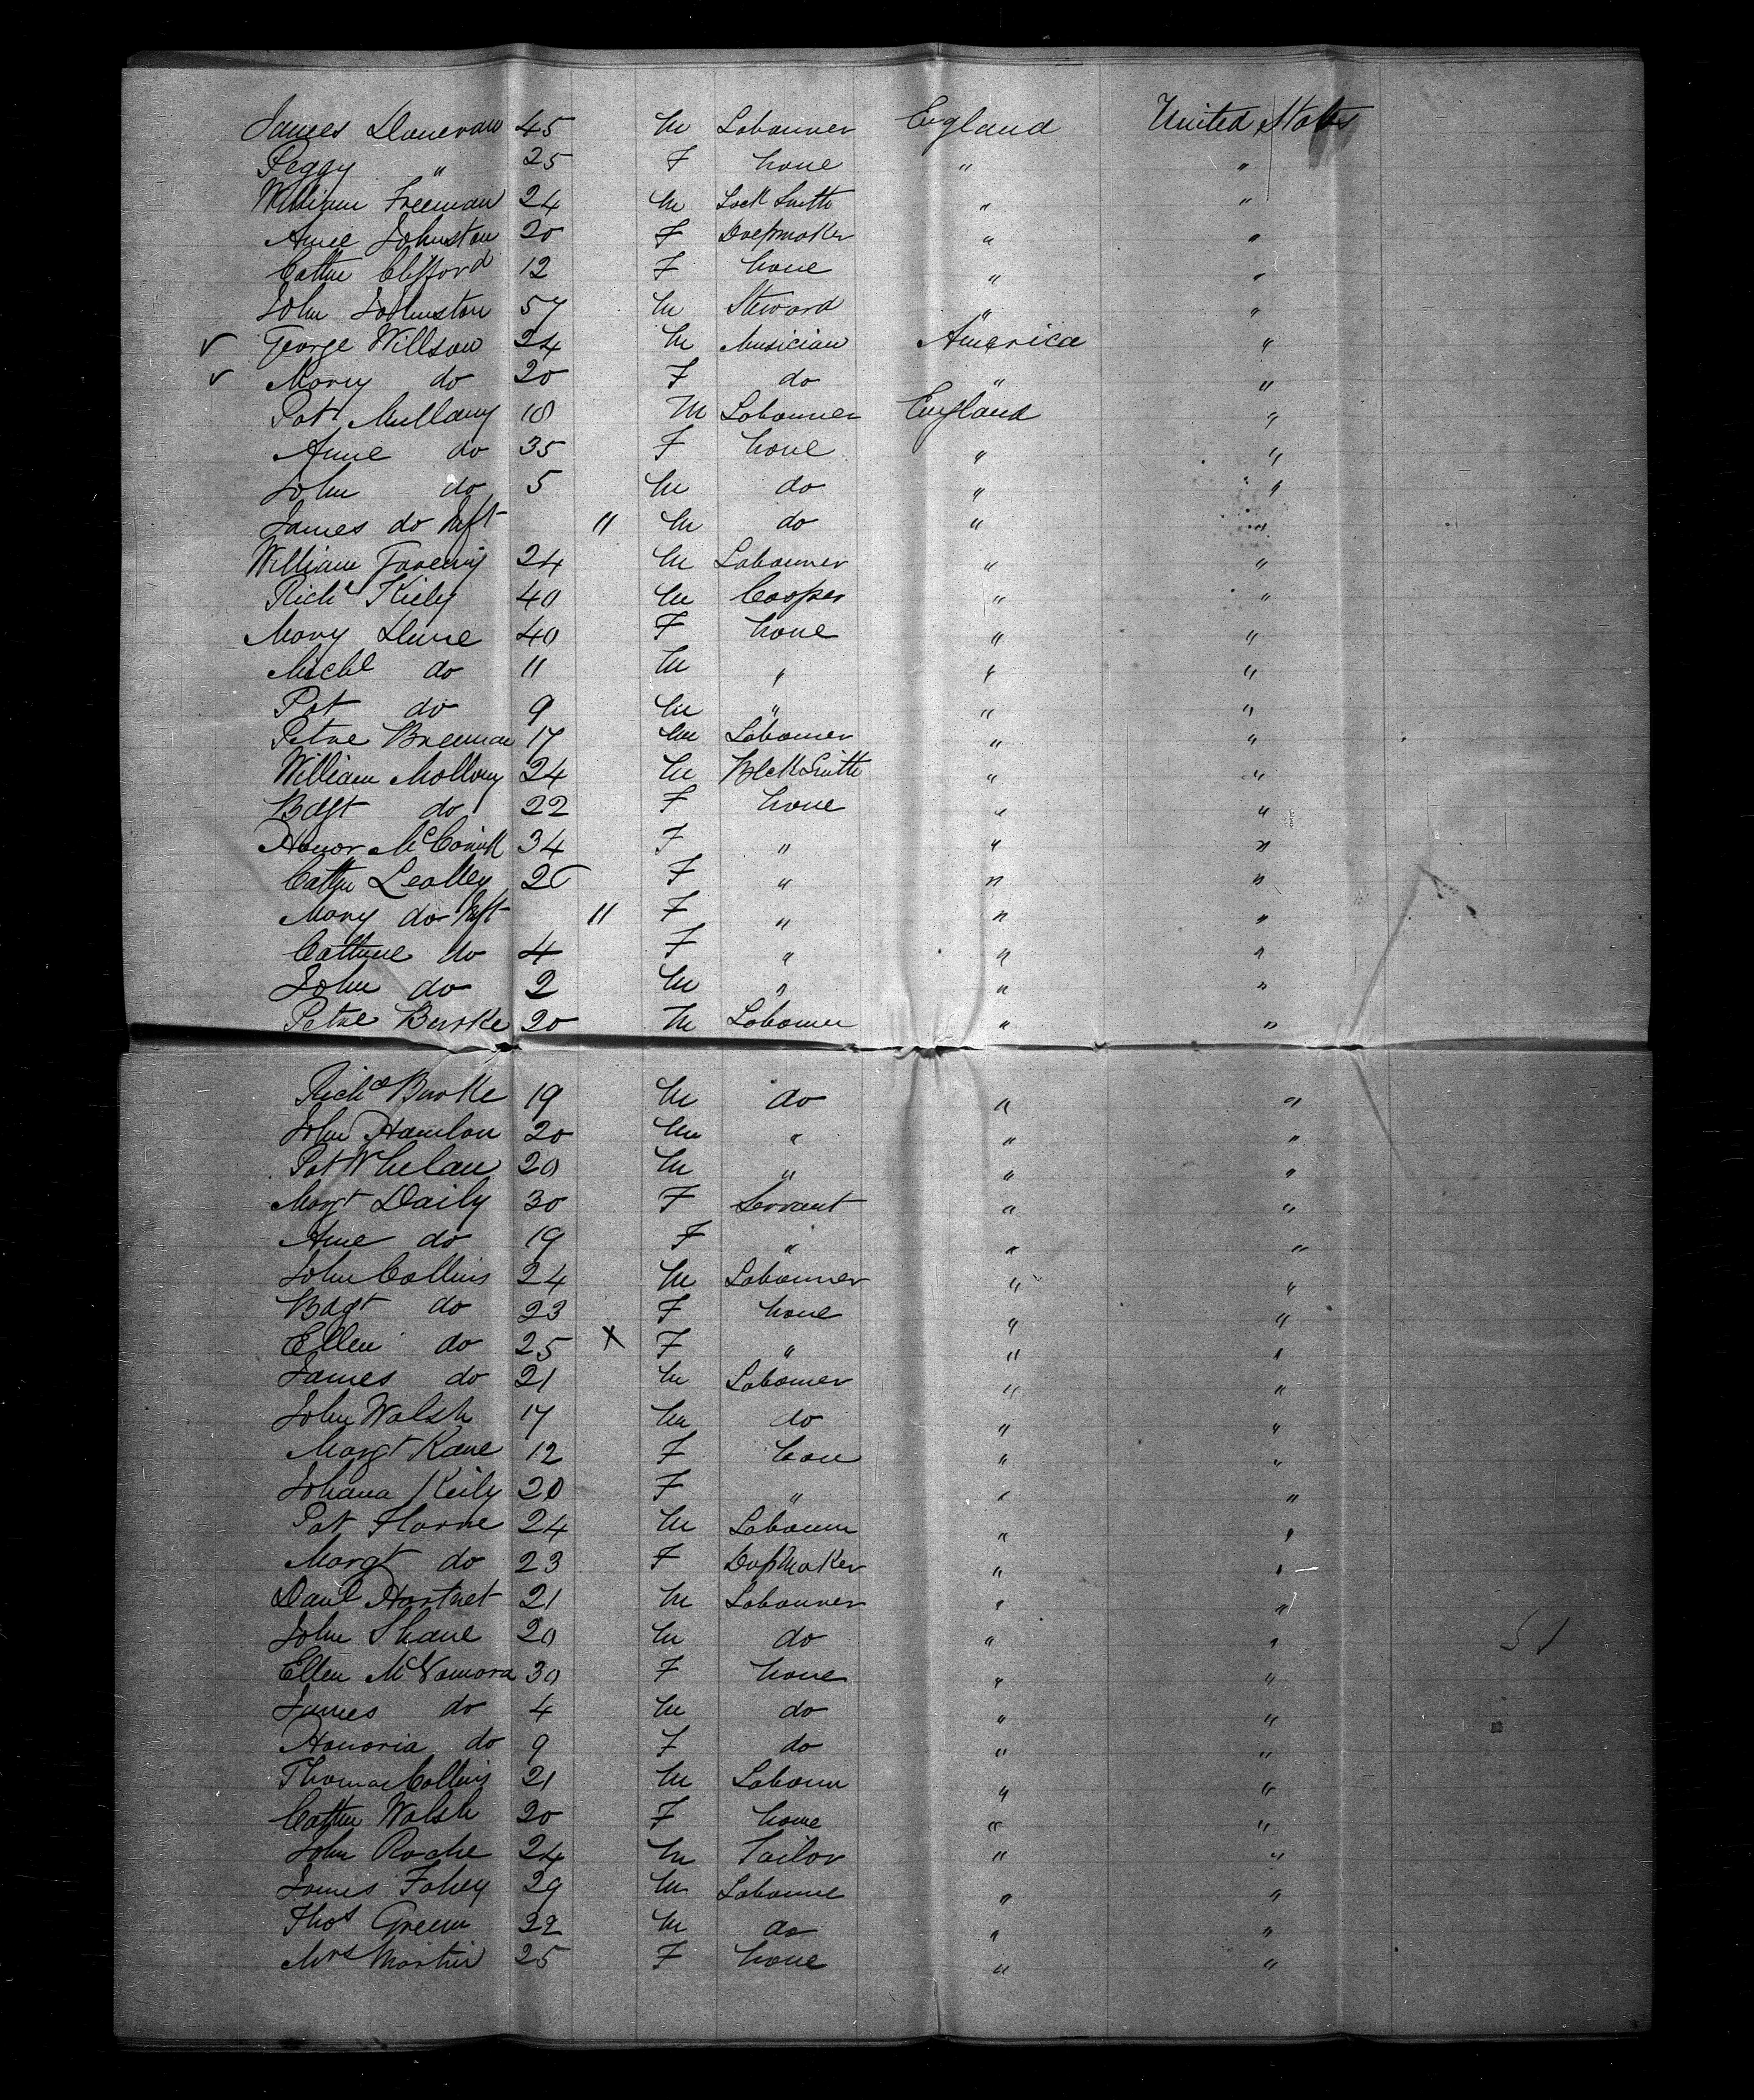 James Donevan 45 M Labourer England United States
Peggy " 25 F none " "
William Freeman 24 M Lock Smith " "
Anne Johnston 20 F Dressmaker " "
Cathe Clifford 12 F none " "
John Johnston 57 M Steward " "
✓ George Willson 24 M Musician America "
✓ Mary do 20 F do " "
Pat Mullany M Labourer England "
Anne do 35 F none " "
John do 5 M do " "
James do Inft " M do " "
William 24 M Labourer " "
Richd Kiely 40 M Cooper " "
Mary Dunne 40 F none " "
Michl do 11 M " " "
Pat do 9 M " " "
Petre Brennan 17 M Labourer " "
William Mollony 24 M Blck Smith " "
Bdgt do 22 F none " "
Honor 34 F " " "
Cathe F " " "
Mary do Inft " F " " "
Catherine do 4 F " " "
John do 2 M " " "
Petre Burke 20 M Labourer " "
Richd Burke 19 M do " "
John Hanlon 20 M " " "
Pat Whelan 20 M " " "
Margt Daily 30 F Servant " "
Anne do 19 F " " "
John Collins 24 M Labourer " "
Bdgt do 23 F none " "
Ellen do 25 X F " " "
James do 21 M Labourer " "
John Walsh 17 M do " "
Margt Kane 12 F none " "
Johana Keily 20 F " " "
Pat 24 M Labourer " "
Margt do 23 F Dressmaker " "
Danl Hartnet 21 M Labourer " "
John Shane 20 M do " "
Ellen McNamara 30 F none " "
James do 4 M do " "
Honoria do 9 F do " "
Thomas Collins 21 M Labour " "
Cathe Walsh 20 F none " "
John Roche 24 M Tailor " "
James Fahey 29 M Labourer " "
Thos Green 22 M do " "
Mrs Martin 25 F none " "